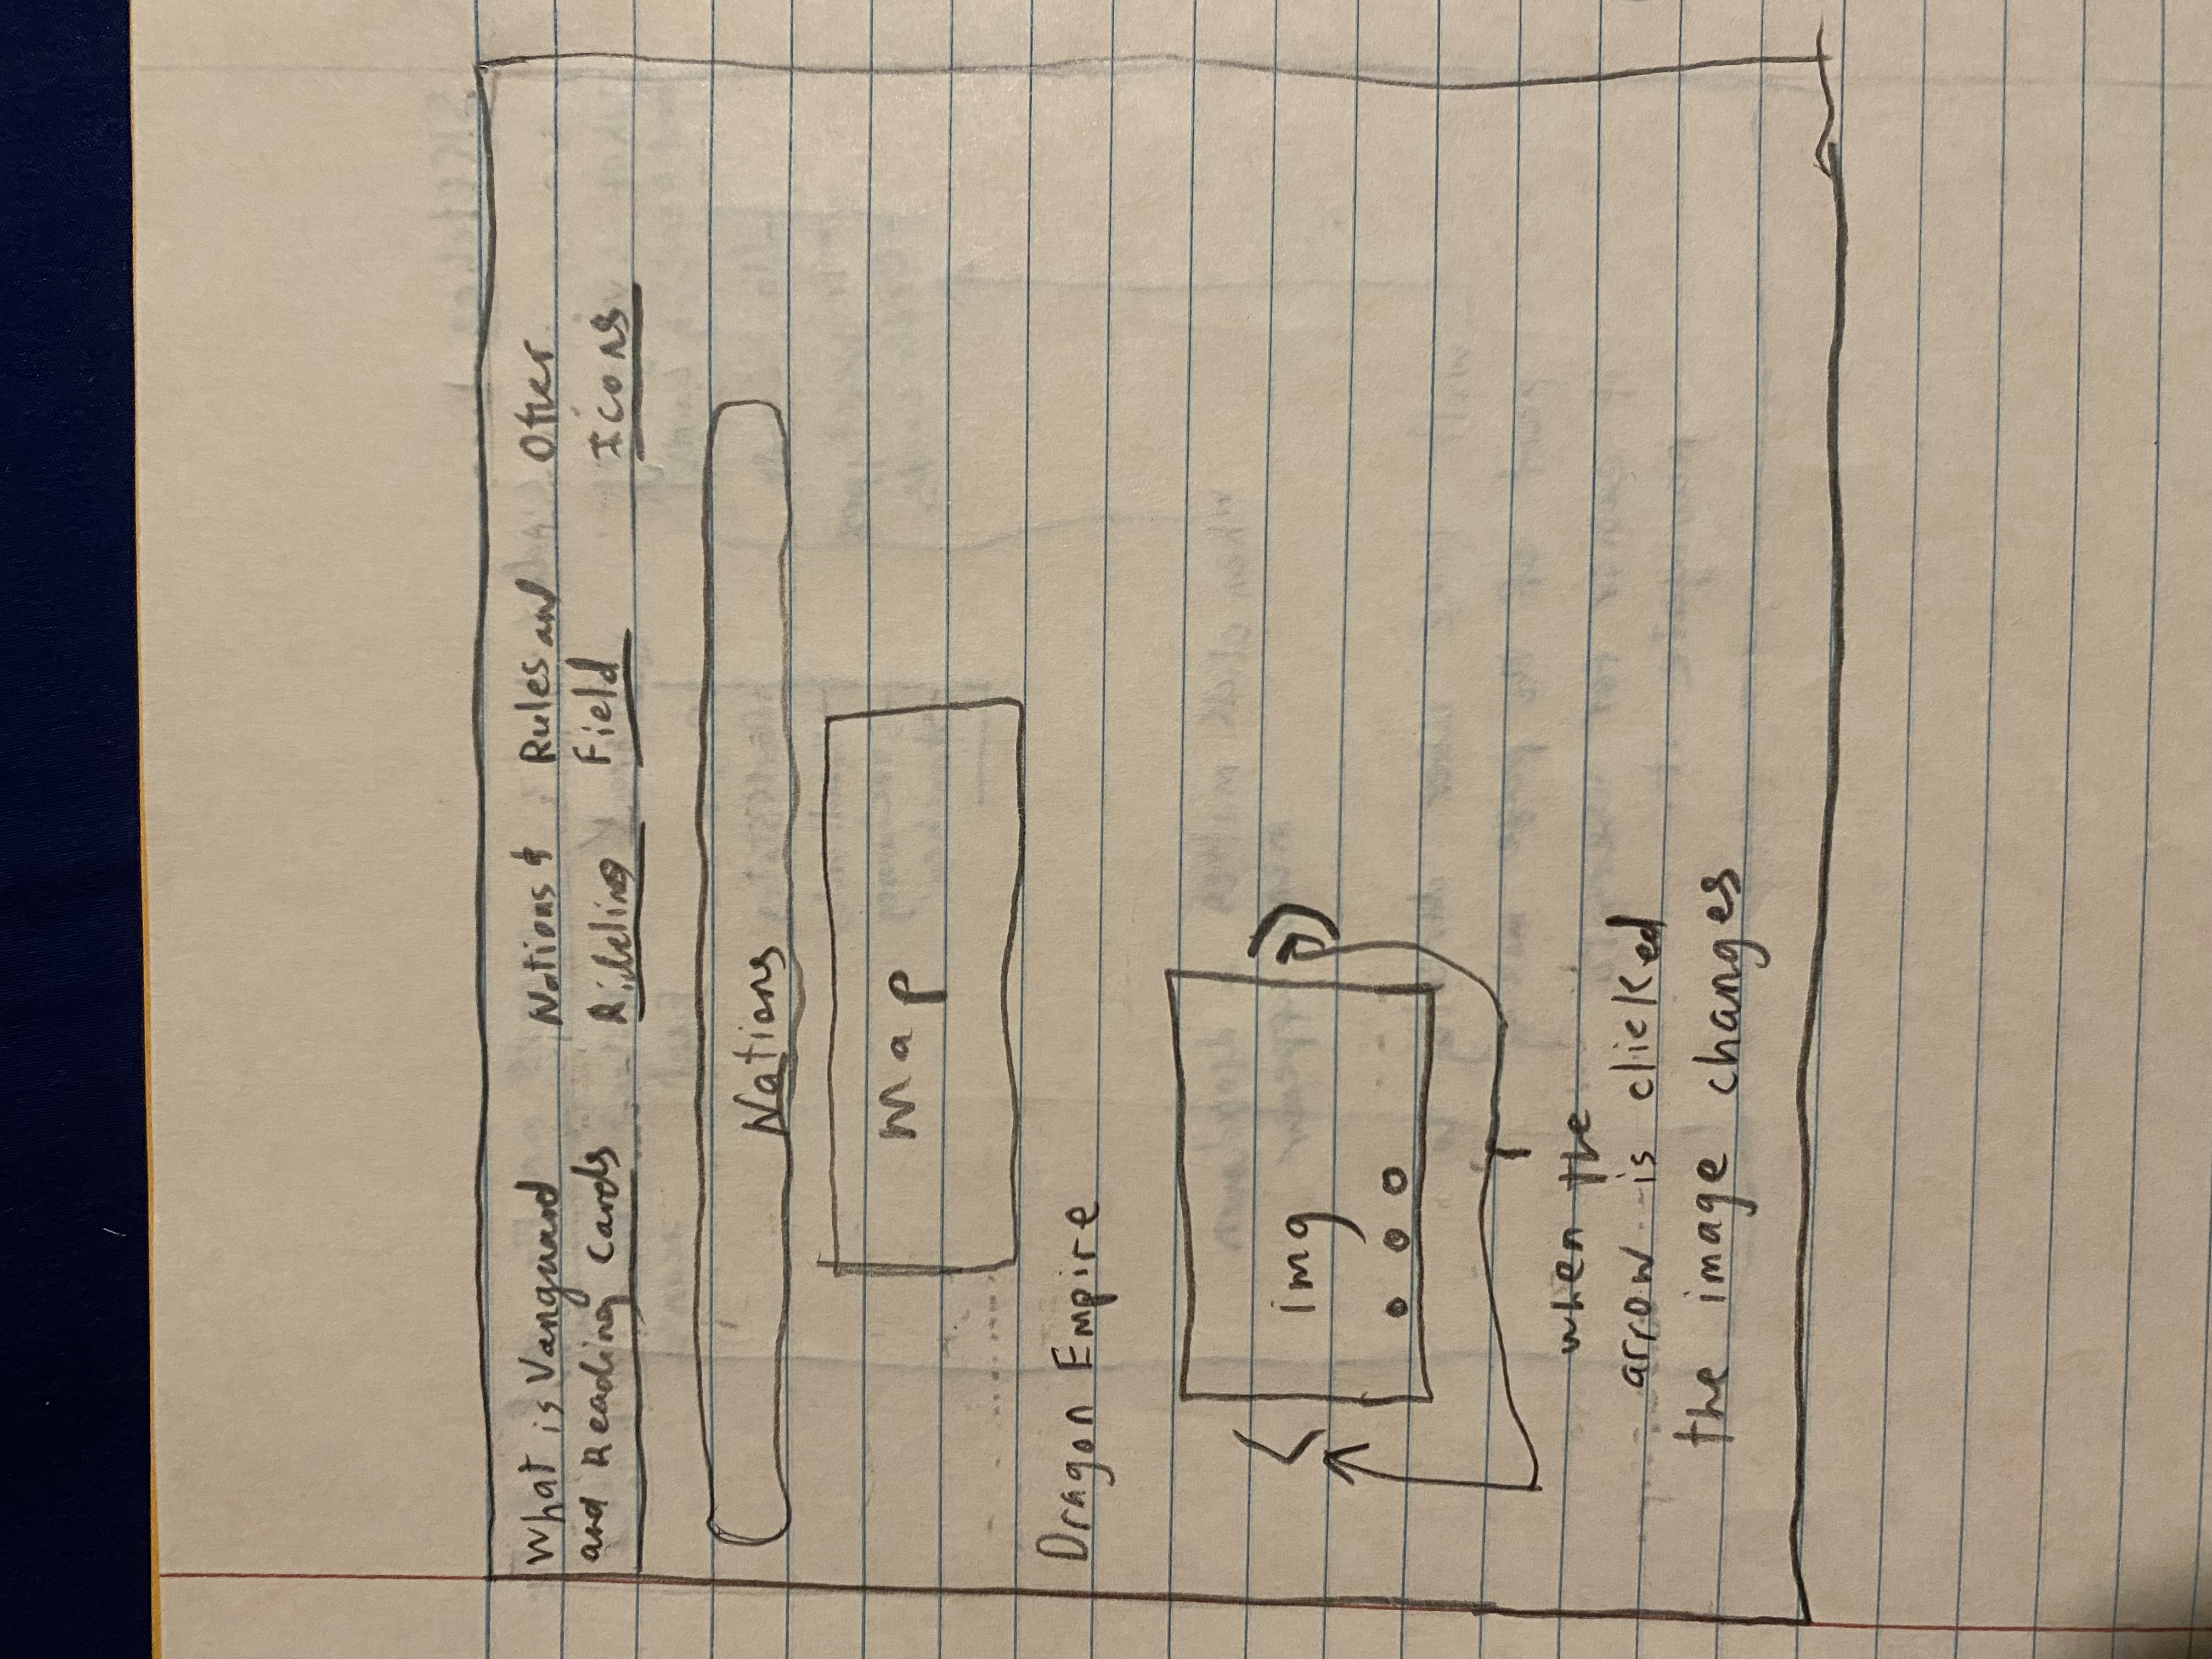 What is Vanguard
and Reading Cards
Nations &
Rules and
Field
Other
Icons
Nations
Map
Dragon Empire
<
img
when the
arrow is clicked
the image changes